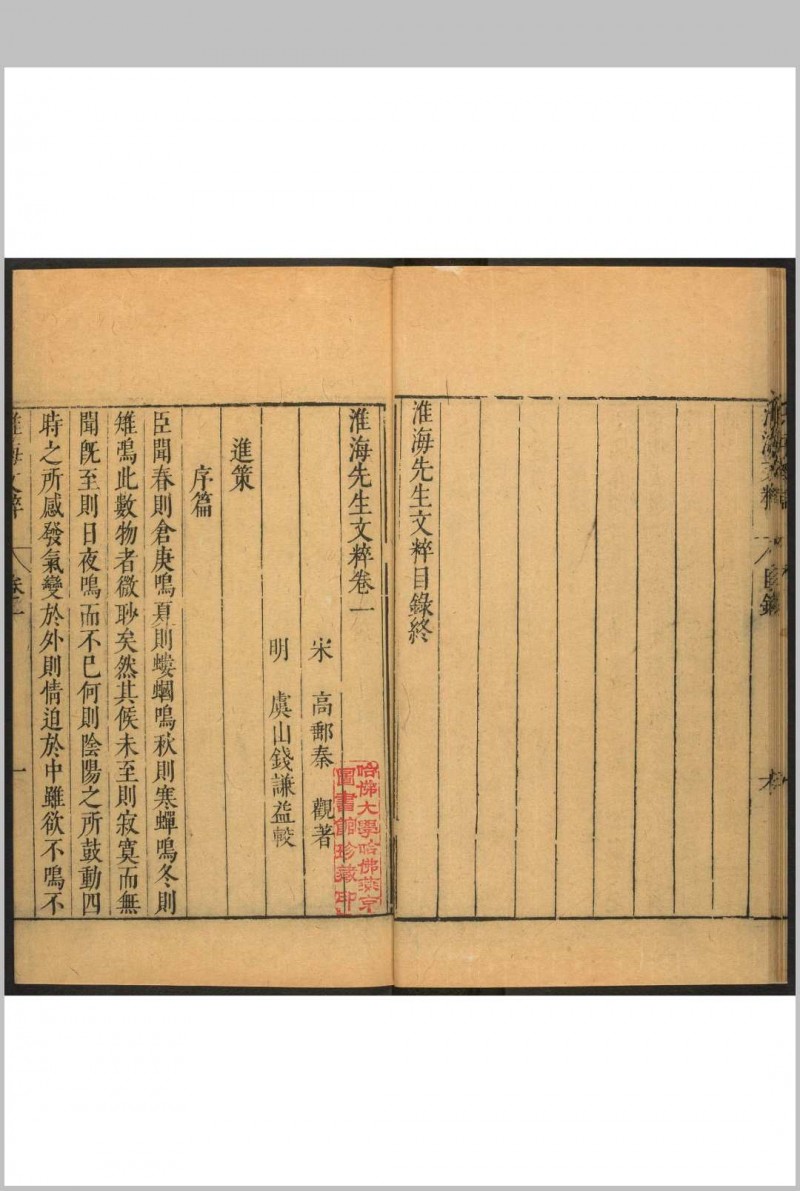 淮海文粹
目錄
淮海先生文粹目錄終
淮海先生文粹卷一
宋 高郵秦 觀著
明 虞山錢謙益較
進策
序篇
臣聞春則倉庚鳴夏則螻蟈鳴秋則寒蟬鳴冬則
雉鳴此數物者微眇矣然其候未至則寂寞而無
聞旣至則日夜鳴而不已何則陰陽之所鼓動四
時之所感發氣變於外則情迫於中雖欲不鳴不
淮海文粹
卷一
一
哈佛大學哈佛燕京
圖書館珍藏印